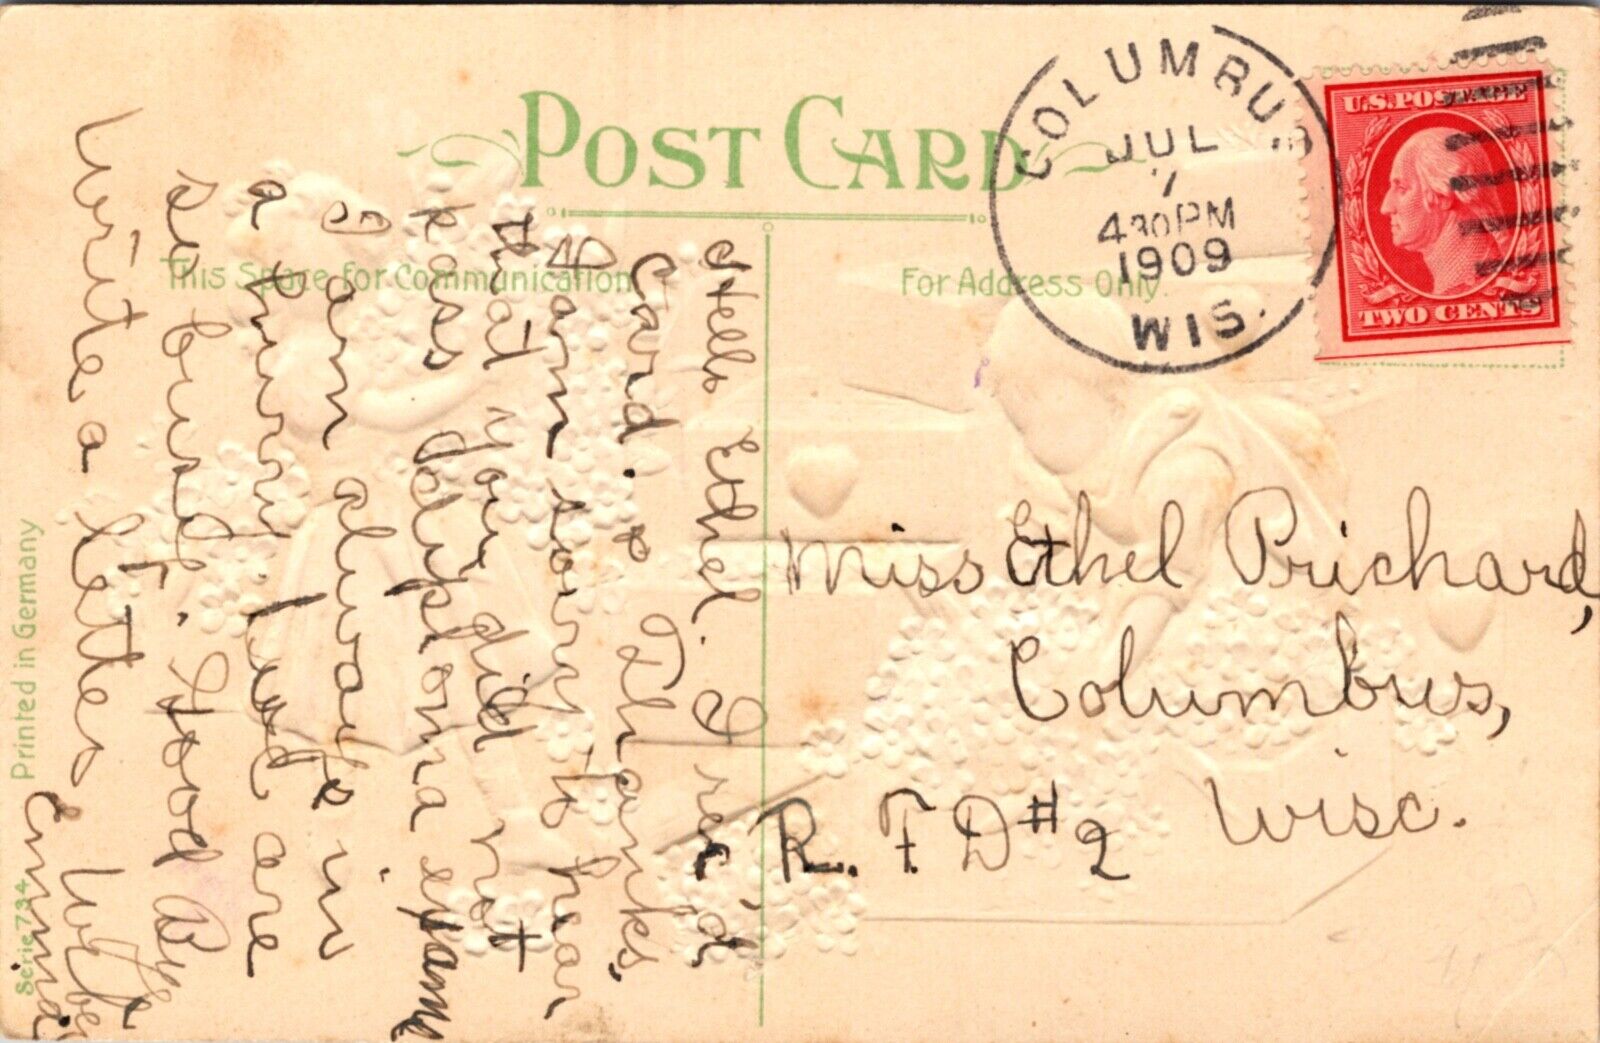 POST CARD
This Space for Communication
For Address Only
COLUMBUS
JUL
7
430PM
1909
WIS.
U.S. POSTAGE
TWO CENTS
Hello Ethel. I rec'd
Card. Thanks,
I am sorry to hear
that you did not
pass diploma exame
I am always in
a hurry. Lad are
so busy. Good Bye
Write a letter
Emma
Miss Ethel Prichard,
Columbus,
Wisc.
R. F D #2
Printed in Germany
Serie 734